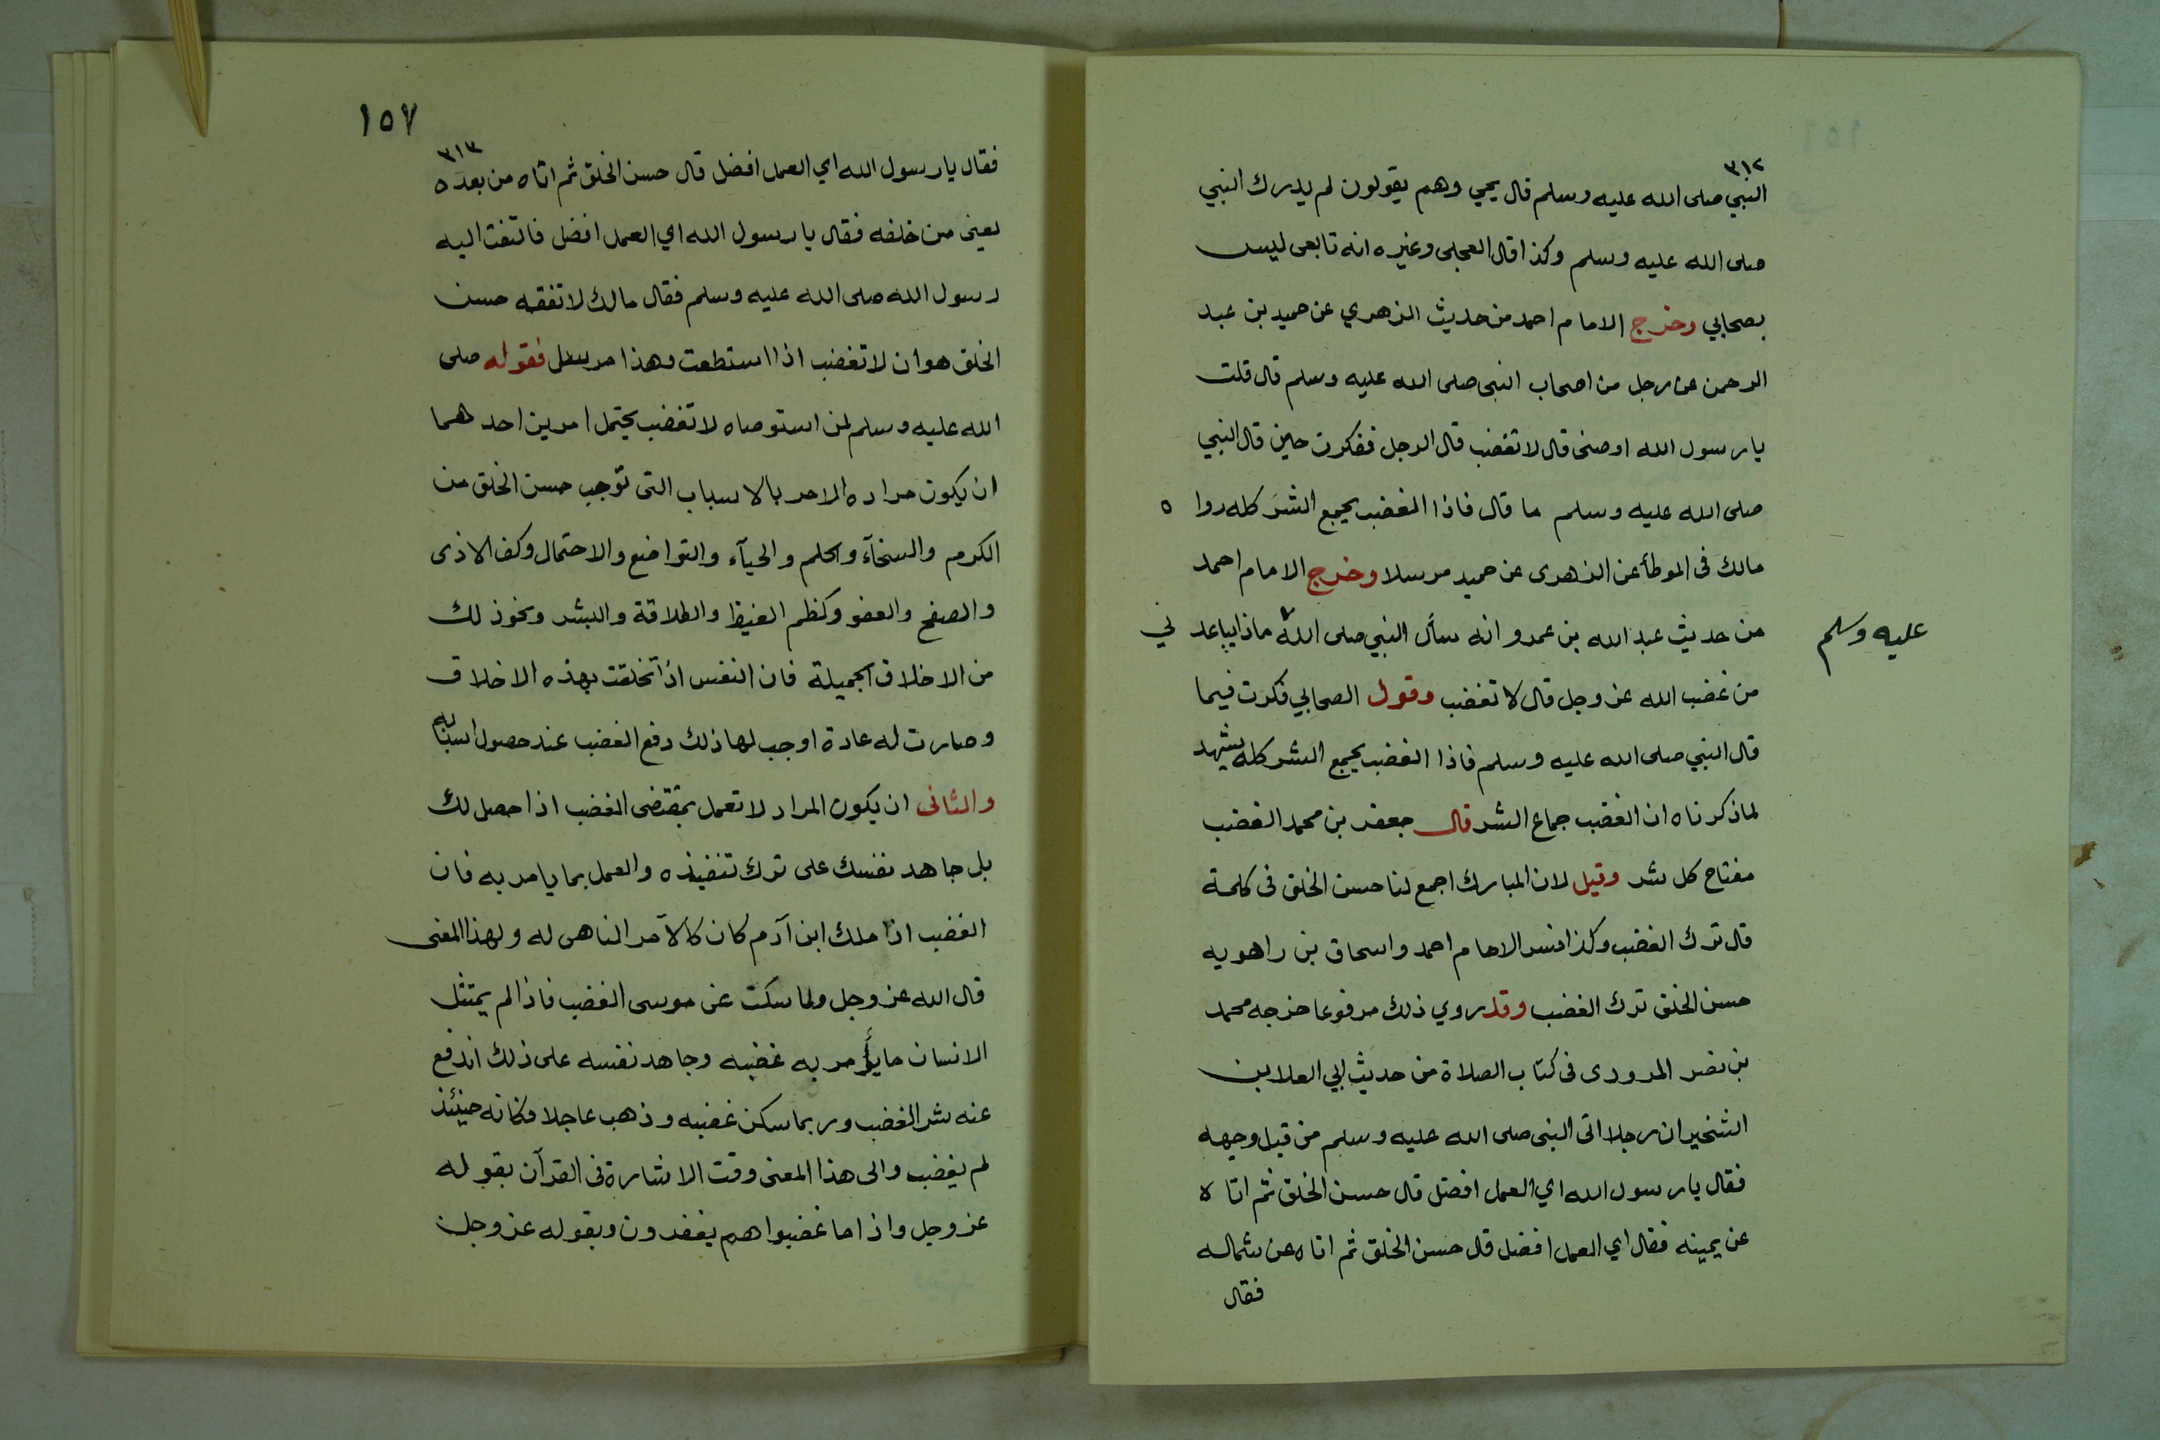 ٣١٢
النبي صلى الله عليه وسلم قال يحيي وهم يقولون لم يدرك النبي
صلى الله عليه وسلم وكذا قال العجلى وغيره انه تابعى ليس
بصحابي وخرج الامام احمد من حديث الزهري عن حميد بن عبد
الرحمن عن رجل من اصحاب النبى صلى الله عليه وسلم قال قلت
يا رسول الله اوصنى قال لا تغضب قال الرجل ففكرت حين قال النبي
صلى الله عليه وسلم ما قال فاذا الغضب يجمع الشر كله روا ه
مالك فى الموطأ عن الزهرى عن حميد مرسلا وخرج الامام احمد
من حديث عبد الله بن عمرو انه سأل النبي صلى الله ماذا يباعد ني
عليه وسلم
من غضب الله عز وجل قال لا تغضب وقول الصحابي فكرت فيما
قال النبي صلى الله عليه وسلم فاذا الغضب يجمع الشر كله يشهد
لما ذكرناه ان الغضب جماع الشر قال جعفر بن محمد الغضب
مفتاح كل شر وقيل لابن المبارك اجمع لنا حسن الخلق فى كلمة
قال ترك الغضب وكذا فسر الامام احمد واسحاق بن راهويه
حسن الخلق ترك الغضب وقد روي ذلك مرفوعا خرجه محمد
بن نصر المروزى فى كتاب الصلاة من حديث ابي العلا بن
الشخير ان رجلا اتى النبى صلى الله عليه وسلم من قبل وجهه
فقال يا رسول الله اي العمل افضل قال حسن الخلق ثم اتا ه
عن يمينه فقال اي العمل افضل قال حسن الخلق ثم اتاه عن شماله
فقال
١٥٧
٣١٣
فقال يا رسول الله اي العمل افضل قال حسن الخلق ثم اتاه من بعده
يعنى من خلفه فقال يا رسول الله اي العمل افضل فالتفت اليه
رسول الله صلى الله عليه وسلم فقال مالك لا تفقه حسن
الخلق هو ان لا تغضب اذا استطعت وهذا مرسل فقوله صلى
الله عليه وسلم لمن استوصاه لا تغضب يحتمل امرين احدهما
ان يكون مراده الامر بالاسباب التى توجب حسن الخلق من
الكرم والسخآء والحلم والحيآء والتواضع والاحتمال وكف الاذى
والصفح والعفو وكظم الغيظ والطلاقة والبشر ونحو ذلك
من الاخلاق الجميلة فان النفس اذا تخلقت بهذه الاخلاق
وصارت له عادة اوجب لها ذلك دفع الغضب عند حصول اسبابه
والثانى ان يكون المراد لا تعمل بمقتضى الغضب اذا حصل لك
بل جاهد نفسك على ترك تنفيذه والعمل بما يامر به فان
الغضب اذا ملك ابن آدم كان كالآمر الناهى له ولهذا المعنى
قال الله عز وجل ولما سكت عن موسى الغضب فاذا لم يمتثل
الانسان ما يأمر به غضبه وجاهد نفسه على ذلك اندفع
عنه شر الغضب وربما سكن غضبه وذهب عاجلا فكانه حينئذ
لم يغضب والى هذا المعنى وقعت الاشارة فى القرآن بقوله
عز وجل واذا ما غضبوا هم يغفرون وبقوله عز وجل